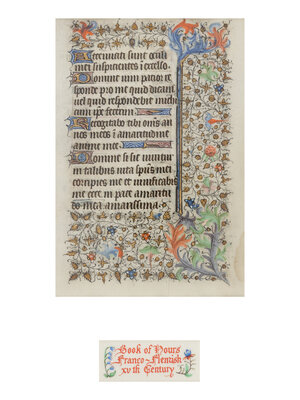 Attenuati sunt oculi
mei suspicientes i excelso.
Domine vim patior re
sponde pro me quid dicam
vel quid respondebit michi
cum ipse fecerim.
Recogitabo tibi oms an
nos meos i amaritudine
anime mee.
Domine si sic vivitur
in talibus vita spūs mei
corripies me et vivificabis
me ecce in pace amaritu
do mea amarissima.
Book of Hours
Franco-Flemish
XVth Century